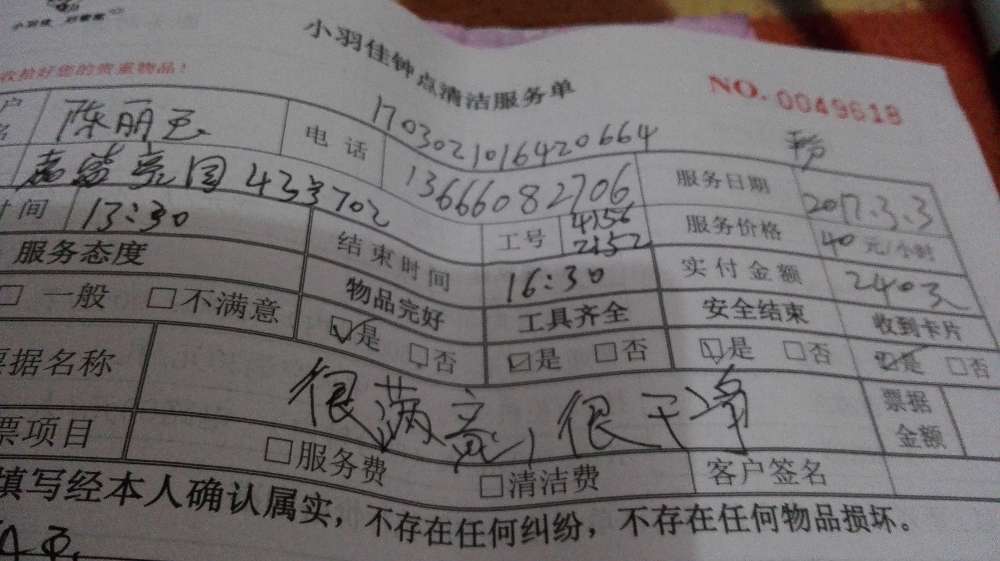 小羽佳
小羽佳钟点清洁服务单
NO. 0049618
收拾好您的贵重物品！
1703021016420664
陈丽玉 电话 13666082706 服务日期 2017.3.3
园43号702 工号 4156 2152 服务价格 40元/小时
时间 13:30 结束时间 16:30 实付金额 240元
服务态度 物品完好 工具齐全 安全结束 收到卡片
□一般 □不满意 ☑是 □否 ☑是 □否 ☑是 □否 ☑是 □否
票据名称 很满意，很干净 票据金额
票项目 □服务费 □清洁费 客户签名
填写经本人确认属实，不存在任何纠纷，不存在任何物品损坏。